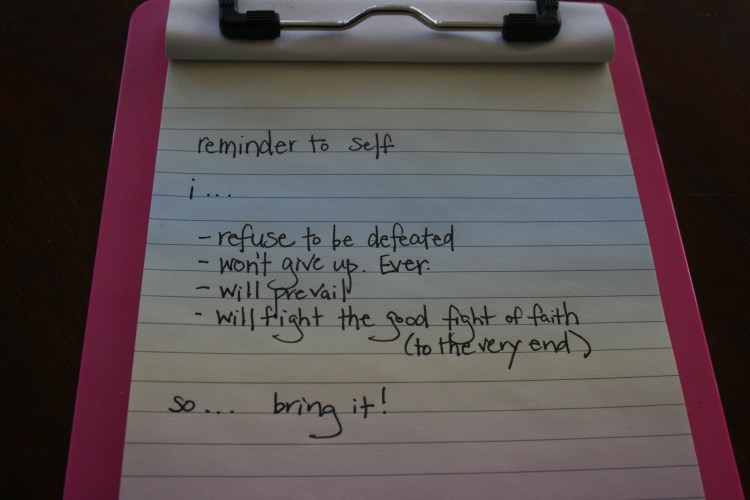 reminder to self
i...
- refuse to be defeated
- won't give up. Ever.
- will prevail
- will fight the good fight of faith
(to the very end)
so... bring it!